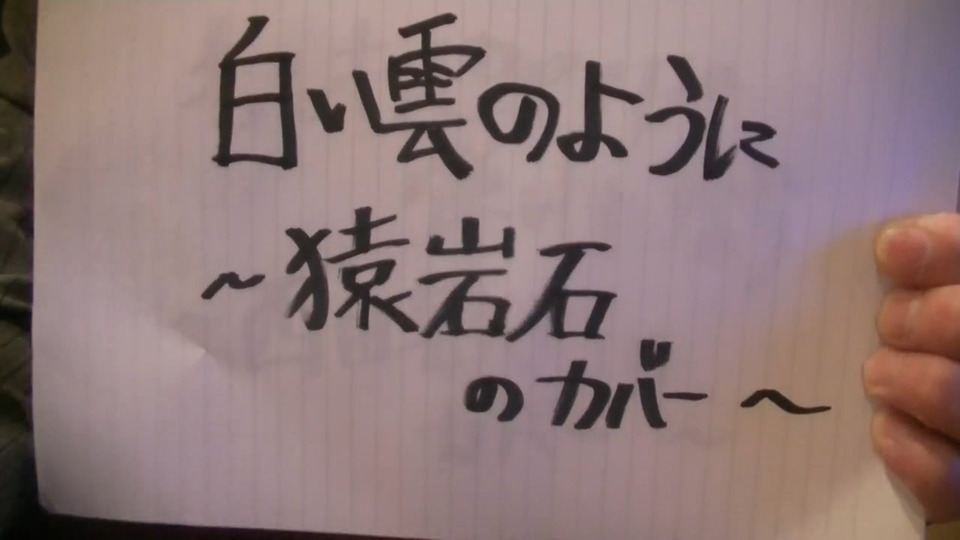 白い雲のように
～猿岩石
のカバー～